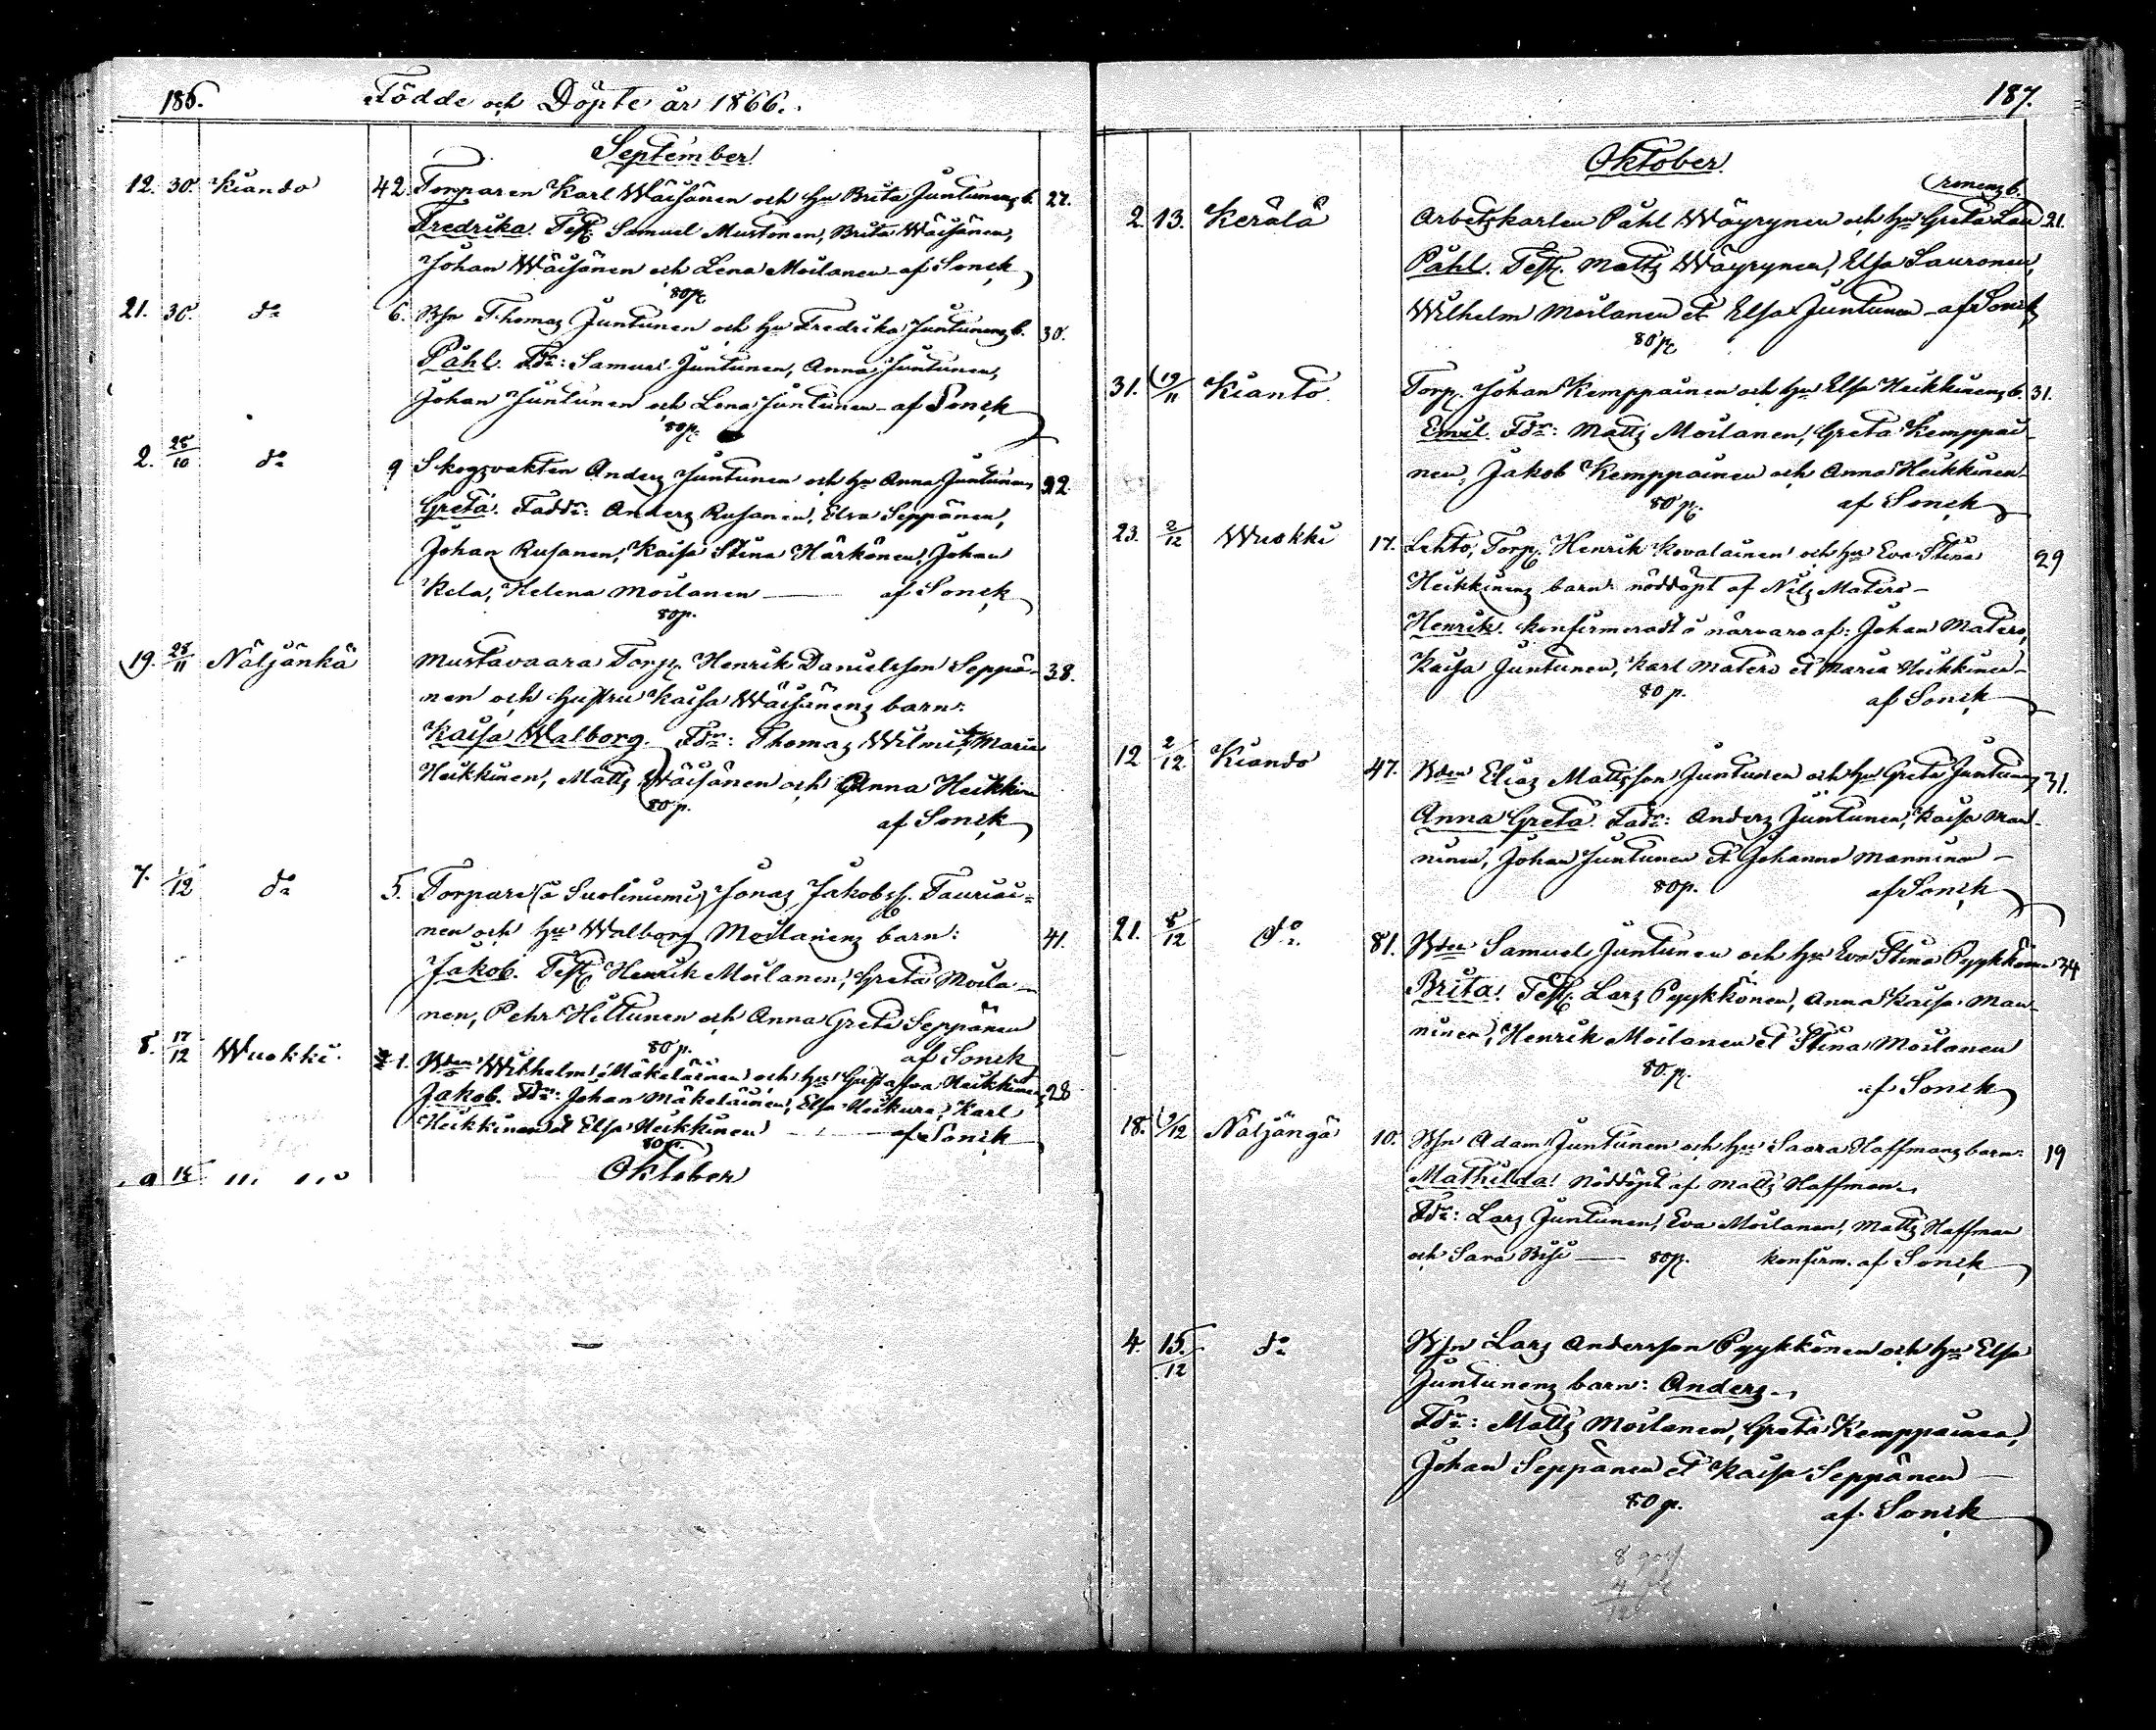 186. Födde och Döpte år 1866.
September
12. 30. Kiando 42. Torparen Karl Wäisänen och hu Brita Juntunens b. 27.
Fredrika. Test. Samuel Mustonen, Brita Wäisänen,
Johan Wäisänen och Lena Moilanen af Sonck
80 p.
21. 30. do 6. Bn Thomas Juntunen och hu Fredrika Juntunens b. 30.
Påhl. Fdr: Samuel Juntunen, Anna Juntunen,
Johan Juntunen och Lena Juntunen af Sonck
80 p.
2. 28/10 do 9 Skogsvakten Anders Juntunen och hu Anna Juntunens 32.
Greta. Faddr: Anders Rusanen, Elsa Seppänen,
Johan Rusanen, Kaisa Stina Härkönen, Johan
Kela, Helena Moilanen — af Sonck
80 p.
19. 28/11 Näljänkä Mustavaara Torp. Henrik Danielsson Seppä- 38.
nen och hustru Kaisa Wäisänens barn:
Kaisa Walborg. Fdr: Thomas Wilmi, Maria
Heikkinen, Matts Wäisänen och Anna Heikkinen
80 p.
af Sonck
7. 1/12 do 5. Torpare (å Suoliniemi) Jonas Jakobss. Tauriai-
nen och hu Walborg Moilanens barn: 41.
Jakob. Test. Henrik Moilanen, Greta Moila-
nen, Pehr Hiltunen och Anna Greta Seppänen
80 p. af Sonck
8. 17/12 Wuokki 1. Bden Wilhelm Mäkeläinen och hu Gustafva Heikkinens 28
Jakob. Fdr: Johan Mäkeläinen, Elsa Heikura, Karl
Heikkinen et Elsa Heikkinen — af Sonck
80 p.
Oktober
187.
Oktober
ronens b.
2. 13. Kerälä Arbetskarlen Påhl Wäyrynen och hu Greta Lau 21.
Påhl. Test. Matts Wäyrynen, Elsa Lauronen,
Wilhelm Moilanen et Elsa Juntunen af Sonck
80 p.
31. 19/11 Kianto Torp. Johan Kemppainen och hu Elsa Heikkinens b. 31.
Emil. Fdr: Matts Moilanen, Greta Kemppai-
nen, Jakob Kemppainen och Anna Heikkinen
80 p. af Sonck
23. 2/12 Wuokki 17. Lehto, Torp. Henrik Kovalainen och hu Eva Stina 29
Heikkinens barn nöddöpt af Nils Matero
Henrik. konfirmeradt i närvaro af: Johan Matero,
Kaisa Juntunen, Karl Matero et Maria Heikkinen
80 p. af Sonck
12 2/12 Kiando 47. Bden Elias Mattsson Juntunen och hu Greta Juntunens 31.
Anna Greta. Fadr: Anders Juntunen, Kaisa Man-
ninen, Johan Juntunen et Johanna Manninen
80 p. af Sonck
21. 8/12 do 81. Bden Samuel Juntunen och hu Eva Stina Pyykkönens 34
Brita. Test. Lars Pyykkönen, Anna Kaisa Man-
ninen, Henrik Moilanen et Stina Moilanen
80 p.
af Sonck
18. 9/12 Näljängä 10. Bn Adam Juntunen och hu Saara Hoffmans barn: 19
Mathilda. Nöddöpt af Matts Hoffman
Fdr: Lars Juntunen, Eva Moilanen, Matts Hoffman
och Sara Bisi — 80 p. konfirm. af Sonck
4. 15./12 do Bn Lars Andersson Pyykkönen och hu Elsa
Juntunens barn: Anders
Fdr: Matts Moilanen, Greta Kemppainen,
Johan Seppänen et Kaisa Seppänen
80 p.
af Sonck